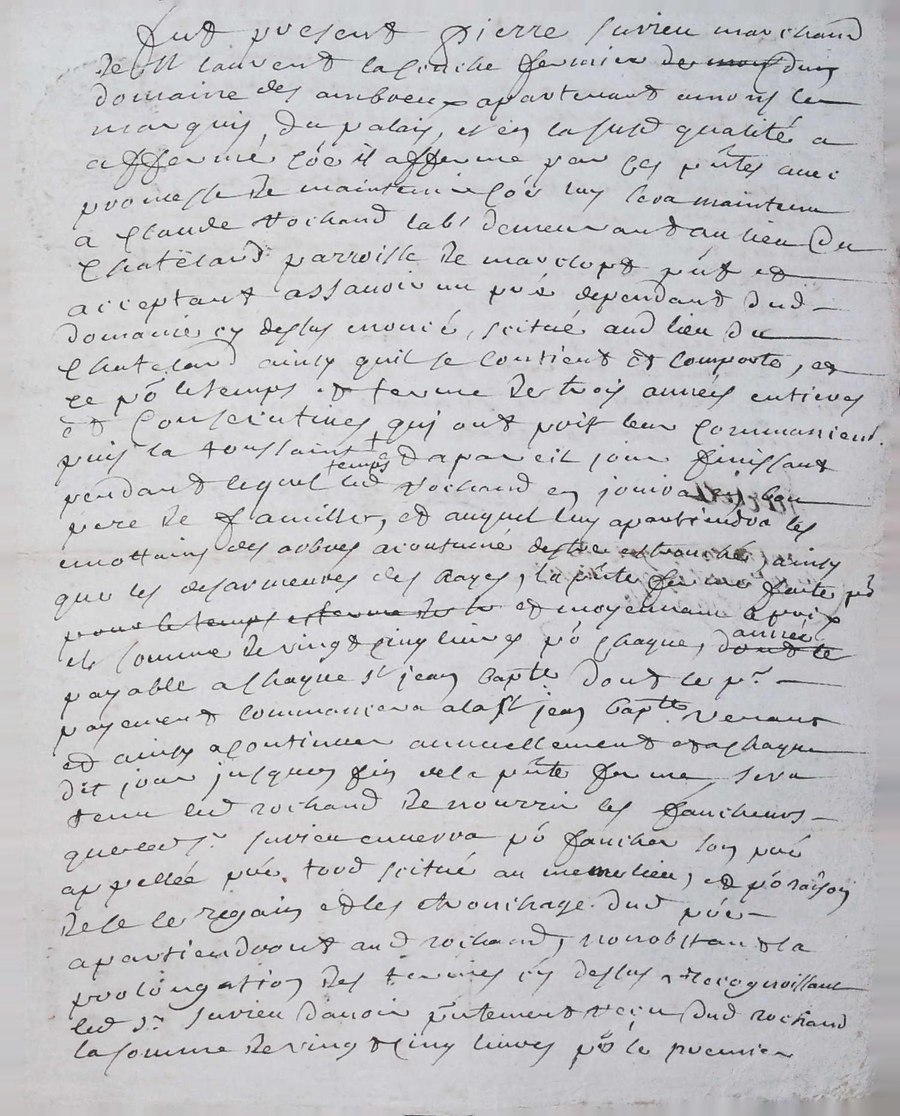 fut present pierre Survieu marchand
de St laurent la Conche fermier de mons dun
domaine des ambreux apartenant amons le
marquis, Du palais, et en la susd qualité a
affermé Côe il afferme par les pntes avec
promesse de maintenir Côe luy sera maintenu
a Claude rochand lab demeurant au lieu Du
Chatelard parroisse de marclopt pnt et
acceptant assavoir un pré dependant dud
domaine cy dessus noncé, scitué aud lieu du
Chatelard ainsy quil se Contient et Comporte, et
ce po le temps et terme de trois années entieres
et Consecutives qui ont prist leur Commancent
puis la toussaint et a pareil jour finissant
pendant lequel temps led rochand en jouira bon
pere de famille, et auquel luy apartiendra les
emottains des arbres acoutumé destre etronché, ainsy
que les desarmeures des hayes, la pnte ferme faite po
pour le temps et terme de tr et moyennant le prix
et somme de vingt Cinq livres po Chaque, année dont le
payable a Chaque st jean bapte dont le pr
payement Commancera a la st jean bapte venant
et ainsy a Continuer annuellement et a chaque
dit jour jusques fin de la pnte ferme, sera
tenu led rochand de nourrir les faucheurs
que led sr Survieu envera po faucher son pré
appellée pré tord scitué au meme lieu, et po raison
de ce le regain et les etronchage dud pré
apartiendront aud rochand, nonobstant la
prolongation des termes cy dessus, recognoissant
led sr Survieu davoir pntement receu dud rochand
la somme de vingt Cinq livres po le premier